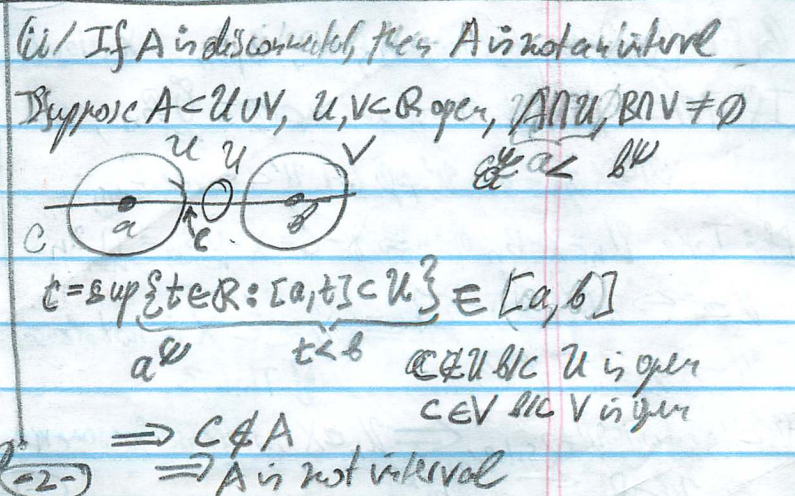 (ii/ If A is disconnected, then A is not an interval
Suppose A ⊂ U ∪ V, U, V ⊂ R open, A∩U, B∩V ≠ ∅
a < b
U U V
a c b
C
c = sup{t ∈ R : [a,t] ⊂ U} ∈ [a, b]
a t < b
C ∉ U b/c U is open
C ∈ V b/c V is open
⟹ C ∉ A
-2- ⟹ A is not interval